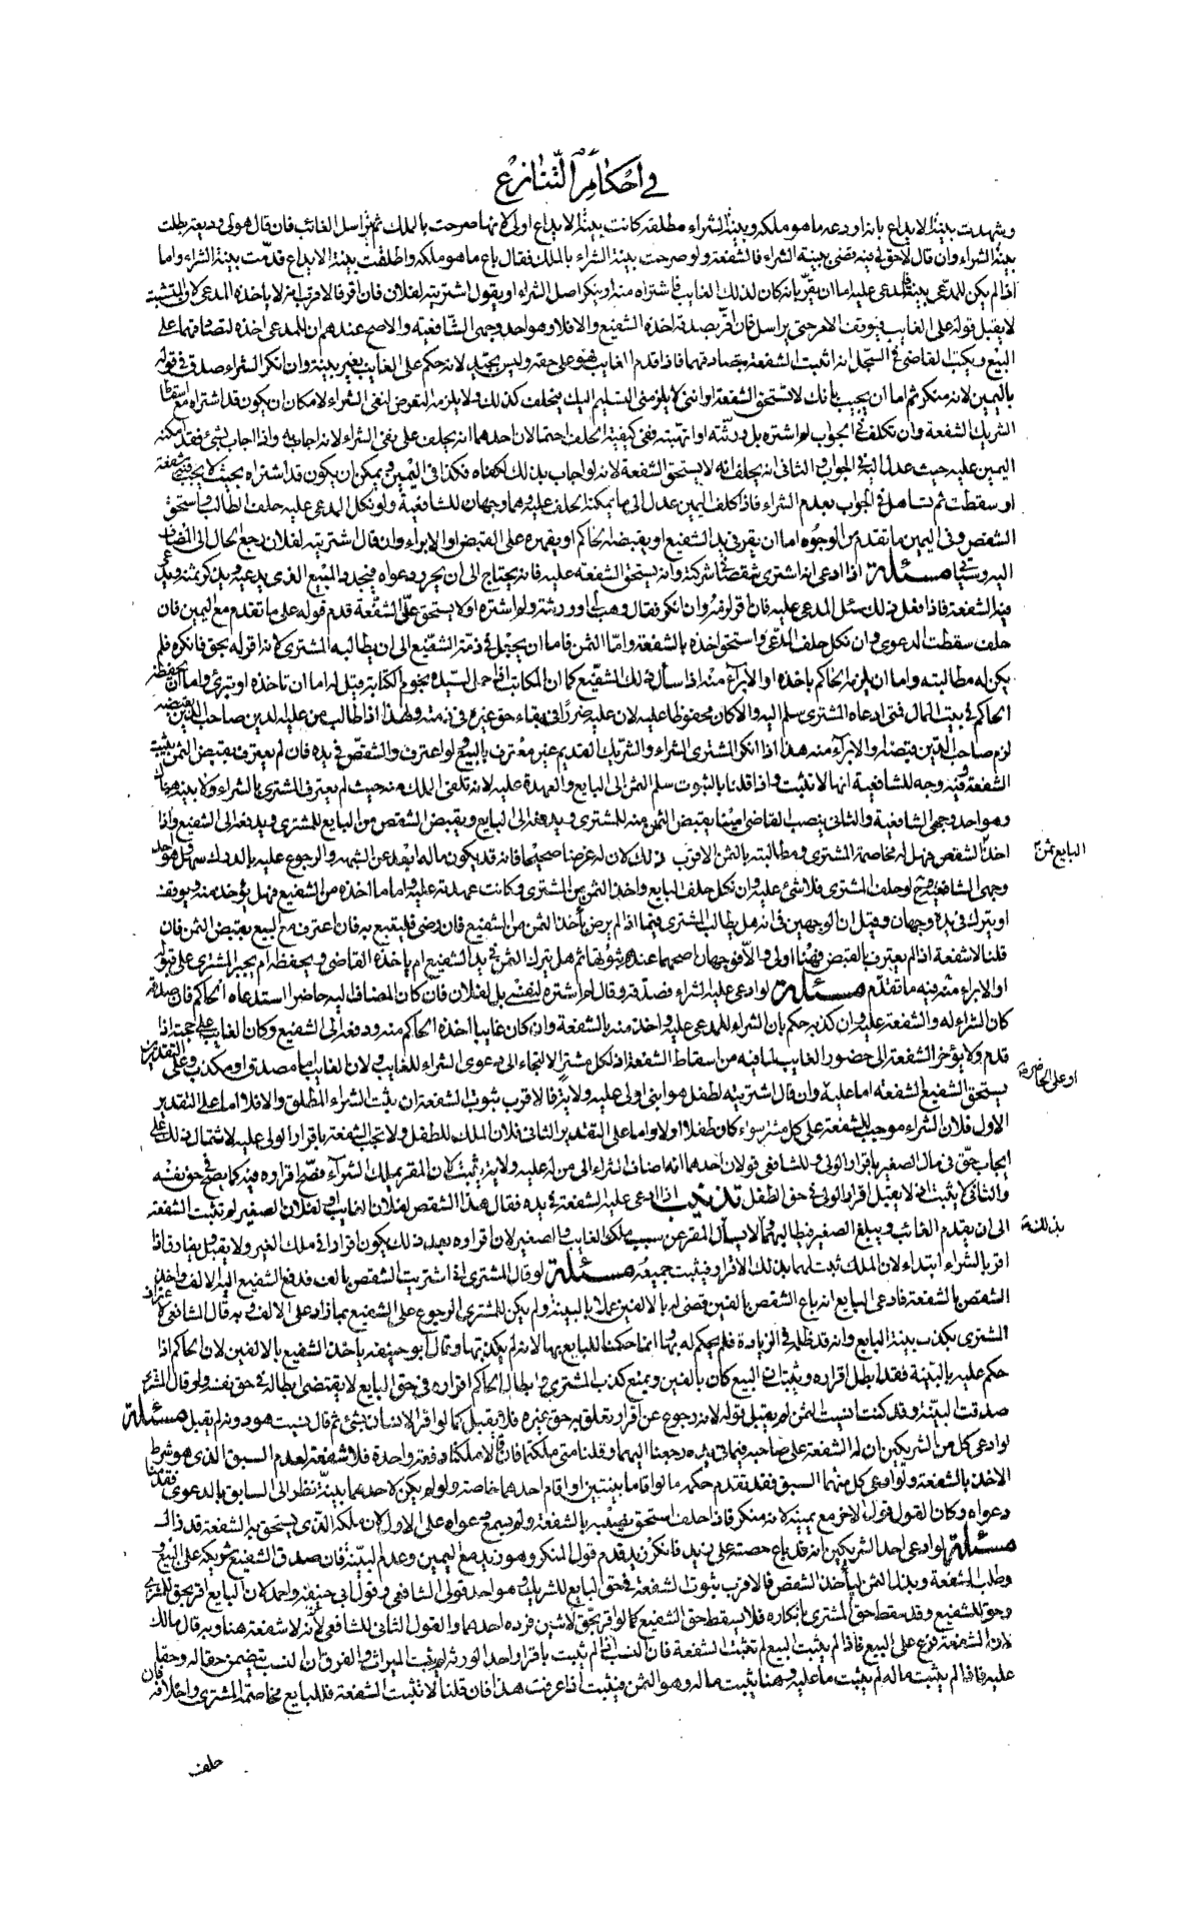 في أحكام التنازع
وشهدت بينة الايداع بانه اودعه ما هو ملكه وبينة الشراء مطلقة كانت بينة الايداع اولى لانها صرحت بالملك ثم يراسل الغائب فان قال هو لي وديعة بطلت
بينة الشراء وان قال لا حق لي فيه قضى ببينة الشراء فالشفعة ولو صرحت بينة الشراء بالملك فقال باع ما هو ملكه واطلقت بينة الايداع قدّمت بينة الشراء واما
اذا لم يكن للمدعى بينة فالمدعى عليه اما ان يقرّ بانه كان لذلك الغايب فاشتراه منه او ينكر اصل الشراء او يقول اشتريته لفلان فان اقر فالاقرب انه لا ياخذه المدعى لان
لا يقبل قوله على الغايب فيوقف الامر حتى يراسل فان اقر بصدقه اخذه الشفيع والا فلا وهو احد وجهى الشافعية والاصح عندهم ان المدعى اخذه لتصادقهما على
البيع ويكتب القاضى في السجل انه اثبت الشفعة بتصادقهما فاذا قدم الغايب فهو على حقه وليس بجيد لانه حكم على الغايب بغير بينة وان انكر الشراء صدق في قوله
باليمين لانه منكر ثم اما ان يجيب بانك لا تستحق الشفعة او اننى لا يلزمنى التسليم اليك فيحلف كذلك ولا يلزمه التعرض لنفى الشراء لامكان ان يكون قد اشتراه مع اسقاط
الشريك الشفعة وان تكلف في الجواب لم اشتره بل ورثته او اتهبته ففى كيفية الحلف احتمالان احدهما انه يحلف على نفى الشراء لانه اجاب به واذا اجاب بشئ فقد امكنه
اليمين عليه حيث عدل اليه في الجواب والثانى انه يحلف انه لا يستحق الشفعة لانه لو اجاب بذلك لكفاه فكذا في اليمين ويمكن ان يكون قد اشتراه بحيث لا يجب فيه شفعة
او سقطت ثم تساهل في الجواب بعدم الشراء فاذا كلف اليمين عدل الى ما يمكنه الحلف عليه وهما وجهان للشافعية ولو نكل المدعى عليه حلف الطالب واستحق
الشقص وفى الثمن ما تقدم من الوجوه اما ان يقر في يد الشفيع او يقبضه الحاكم او يقهره على القبض او الابراء وان قال اشتريته لفلان رجع الحال الى المضاف
اليه وسياتى مسئلة اذا ادعى انه اشترى شقصا في شركته وانه يستحق الشفعة عليه فانه يحتاج الى ان يحرر دعواه فيحدد المبيع الذى يدعيه ويذكر ثمنه ويدعى
فيه الشفعة فاذا فعل ذلك سئل المدعى عليه فان اقر لزمه وان انكر فقال وهبته او ورثته ولم اشتره او لا يستحق علىّ الشفعة قدم قوله على ما تقدم مع اليمين فان
حلف سقطت الدعوى وان نكل حلف المدعى واستحق اخذه بالشفعة وامّا الثمن فاما ان يجعل في ذمة الشفيع الى ان يطالبه المشترى لانه اقر له بحق فانكره فلم
يكن له مطالبته واما ان يلزمه الحاكم باخذه او الابراء منه اذا سأل ذلك الشفيع كما ان المكاتب اذا حمل الى سيده نجوم الكتابة قيل له اما ان تاخذه او تبرئ واما ان يحفظه
الحاكم في بيت المال فمتى ادعاه المشترى سلم اليه والا كان محفوظا عليه لان عليه ضررا في بقاء حق غيره في ذمته ولهذا اذا طالب من عليه الدين صاحب الدين بقبضه
لزم صاحب الدين قبضه او الابراء منه هذا اذا انكر المشترى الشراء والشريك القديم غير معترف بالبيع ولو اعترف والشقص في يده فان لم يعترف بقبض الثمن تثبت
الشفعة وفيه وجه للشافعية انها لا تثبت واذا قلنا بالثبوت سلم الثمن الى البايع والعهدة عليه لانه تلقى الملك منه حيث لم يعترف المشترى بالشراء ولا بينة وهنا
وهو احد وجهى الشافعية والثانى ينصب القاضى امينا يقبض الثمن منه للمشترى ويدفعه الى البايع ويقبض الشقص من البايع للمشترى ويدفعه الى الشفيع واذا
اخذ الشقص فهل له مخاصمة المشترى ومطالبته بالثمن الاقرب ذلك لان له غرضا صحيحا فانه قد يكون ماله ابعد عن الشبهه والرجوع عليه بالدرك سهل هو احد
البايع ثمن
وجهى الشافعية فحينئذ لو حلف المشترى فلا شئ عليه وان نكل حلف البايع واخذ الثمن من المشترى وكانت عهدته عليه واما ما اخذه من الشفيع فهل يؤخذ منه ويوقف
او يترك في يده وجهان وقيل ان الوجهين في انه هل يطالب المشترى فيما اذا لم يرض باخذ الثمن من الشفيع فان رضى فليقنع به فان اعترف مع البيع بقبض الثمن فان
قلنا لا شفعة اذا لم يعترف بالقبض فهنا اولى والا فوجهان اصحهما عندهم ثبوتها ثم هل يترك الثمن في يد الشفيع ام ياخذه القاضى ويحفظه ام يجبر المشترى على قبوله
او الابراء منه فيه ما تقدم مسئلة لو ادعى عليه الشراء فصدقه وقال لم اشتره لنفسى بل لفلان فان كان المضاف اليه حاضرا استدعاه الحاكم فان صدقه
كان الشراء له والشفعة عليه وان كذبه حكم بان الشراء للمدعى عليه واخذ منه بالشفعة وان كان غايبا اخذه الحاكم منه ودفعه الى الشفيع وكان الغايب على حجته اذا
قدم ولا يؤخر الشفعة الى حضور الغايب لما فيه من اسقاط الشفعة اذ لكل مشتر الالتجاء الى دعوى الشراء للغايب ولان الغايب اما مصدق او مكذب وعلى التقديرين
او على الحاضر
يستحق الشفيع الشفعة اما عليه وان قال اشتريته لطفل هو ابنى اولى عليه ولاية فالاقرب ثبوت الشفعة ان ثبت الشراء المطلق والا فلا اما على التقدير
الاول فلان الشراء موجب للشفعة على كل مشتر سواء كان طفلا او لا واما على التقدير الثانى فلان الملك للطفل ولا تجب الشفعة باقرار الولى عليه لاشتمال ذلك على
ايجاب حق في مال الصغير باقرار الولى وللشافعى قولان احدهما انه اضاف الشراء الى من له عليه ولاية ثبت لان المقر يملك الشراء فصح اقراره فيه كما يصح في حق نفسه
والثانى لا يثبت اذ لا يقبل اقرار الولى في حق الطفل تذنيب اذا ادعى عليه الشفعة في يده فقال هذا الشقص لفلان الغايب او لفلان الصغير لم تثبت الشفعة
الى ان يقدم الغائب ويبلغ الصغير فيطالبهما ولا يسأل المقر عن سبب ملك الغايب والصغير لان اقراره بعد ذلك يكون اقرارا في ملك الغير ولا يقبل ويفارق اذا
اقر بالشراء ابتداء لان الملك ثبت لهما بذلك الاقرار فيثبت جميعه مسئلة لو قال المشترى انى اشتريت الشقص بالف فدفع الشفيع اليه الالف واخذ
الشقص بالشفعة فادعى البايع انه باع الشقص بالفين قضى له بالالفين عملا بالبينة ولم يكن للمشترى الرجوع على الشفيع بما زاد على الالف وبه قال الشافعى لاعتراف
المشترى بكذب بينة البايع وانه قد ظلمه في الزيادة فلم يحكم له بها وانما حكمنا للبايع بها لانه لم يكذبها وقال ابو حنيفه ياخذ الشفيع بالالفين لان الحاكم اذا
حكم عليه بالبينة فقد ابطل اقراره ويثبت ان البيع كان بالفين ويمنع كذب المشترى وابطال الحاكم اقراره في حق البايع لا يقتضى ابطاله في حق نفسه ولو قال المشترى
صدقت البينة وقد كنت انسيت الثمن لم يقبل قوله لانه رجوع عن اقرار تعلق به حق غيره فلا يقبل كما لو اقر لانسان بشئ ثم قال نسيت هو دونه لم يقبل مسئلة
لو ادعى كل من الشريكين ان له الشفعة على صاحبه فيما في يده رجعنا اليهما وقلنا متى ملكتما فان قالا ملكناه دفعة واحدة فلا شفعة لعدم السبق الذى هو شرط
الاخذ بالشفعة ولو ادعى كل منهما السبق فقد تقدم حكمه ما لو اقاما بينتين او اقام احدهما خاصة ولو لم يكن لاحدهما بينة نظر الى السابق بالدعوى فقدمنا
دعواه وكان القول قول الاخر مع يمينه لانه منكر فاذا حلف استحق نصيبه بالشفعة ولم تسمع دعواه على الاول لان ملكه الذى يستحق به الشفعة قد زال
مسئلة لو ادعى احد الشريكين انه قد باع حصته على زيد فانكر زيد قدم قول المنكر وهو زيد مع اليمين وعدم البيّنة فان صدق الشفيع شريكه على البيع
وطلب الشفعة وبذل الثمن لياخذ الشقص فالاقرب ثبوت الشفعة في حق البايع للشريك وهو احد قولى الشافعى وقول ابى حنيفه واحمد لان البايع اقر بحق للمشترى
وحق للشفيع وقد سقط حق المشترى بانكاره فلا يسقط حق الشفيع كما لو اقر بحق لاثنين فرده احدهما والقول الثانى للشافعى لا شفعة هنا وبه قال مالك
لان الشفعة فرع على البيع فاذا لم يثبت البيع لم تثبت الشفعة فان النسب اذا لم يثبت باقرار احد الورثه لم يثبت الميراث والفرق ان النسب يتضمن حقا له وحقا
عليه فاذا لم يثبت ماله لم يثبت ما عليه وهنا يثبت ماله وهو الثمن فيثبت اذا عرفت هذا فان قلنا لا تثبت الشفعة فللبايع مخاصمة المشترى واحلافه فان
حلف